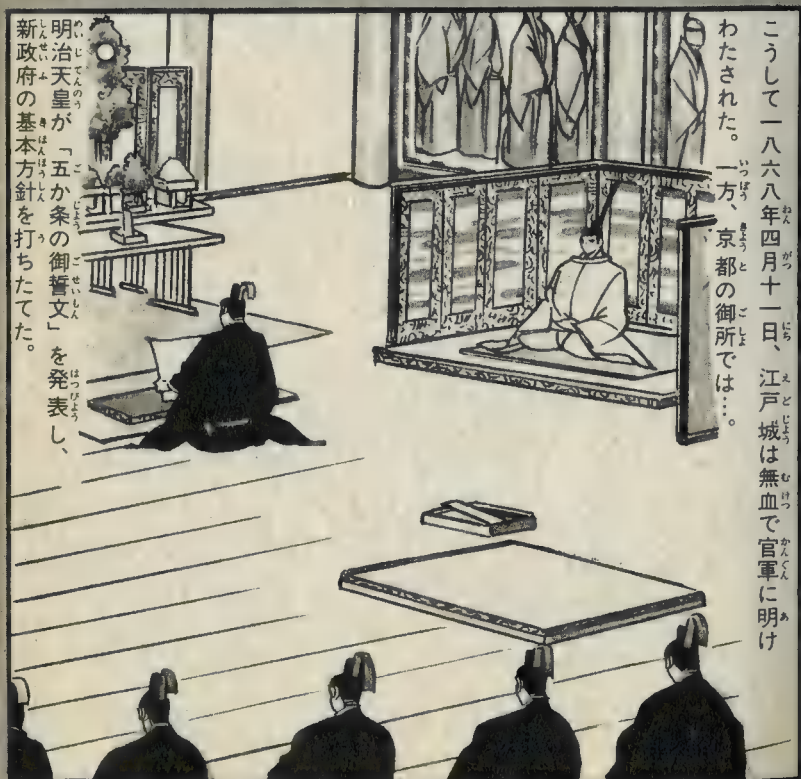 こうして一八六八年四月十一日、江戸城は無血で官軍に明け
わたされた。一方、京都の御所では…。
明治天皇が「五か条の御誓文」を発表し、
新政府の基本方針を打ちたてた。